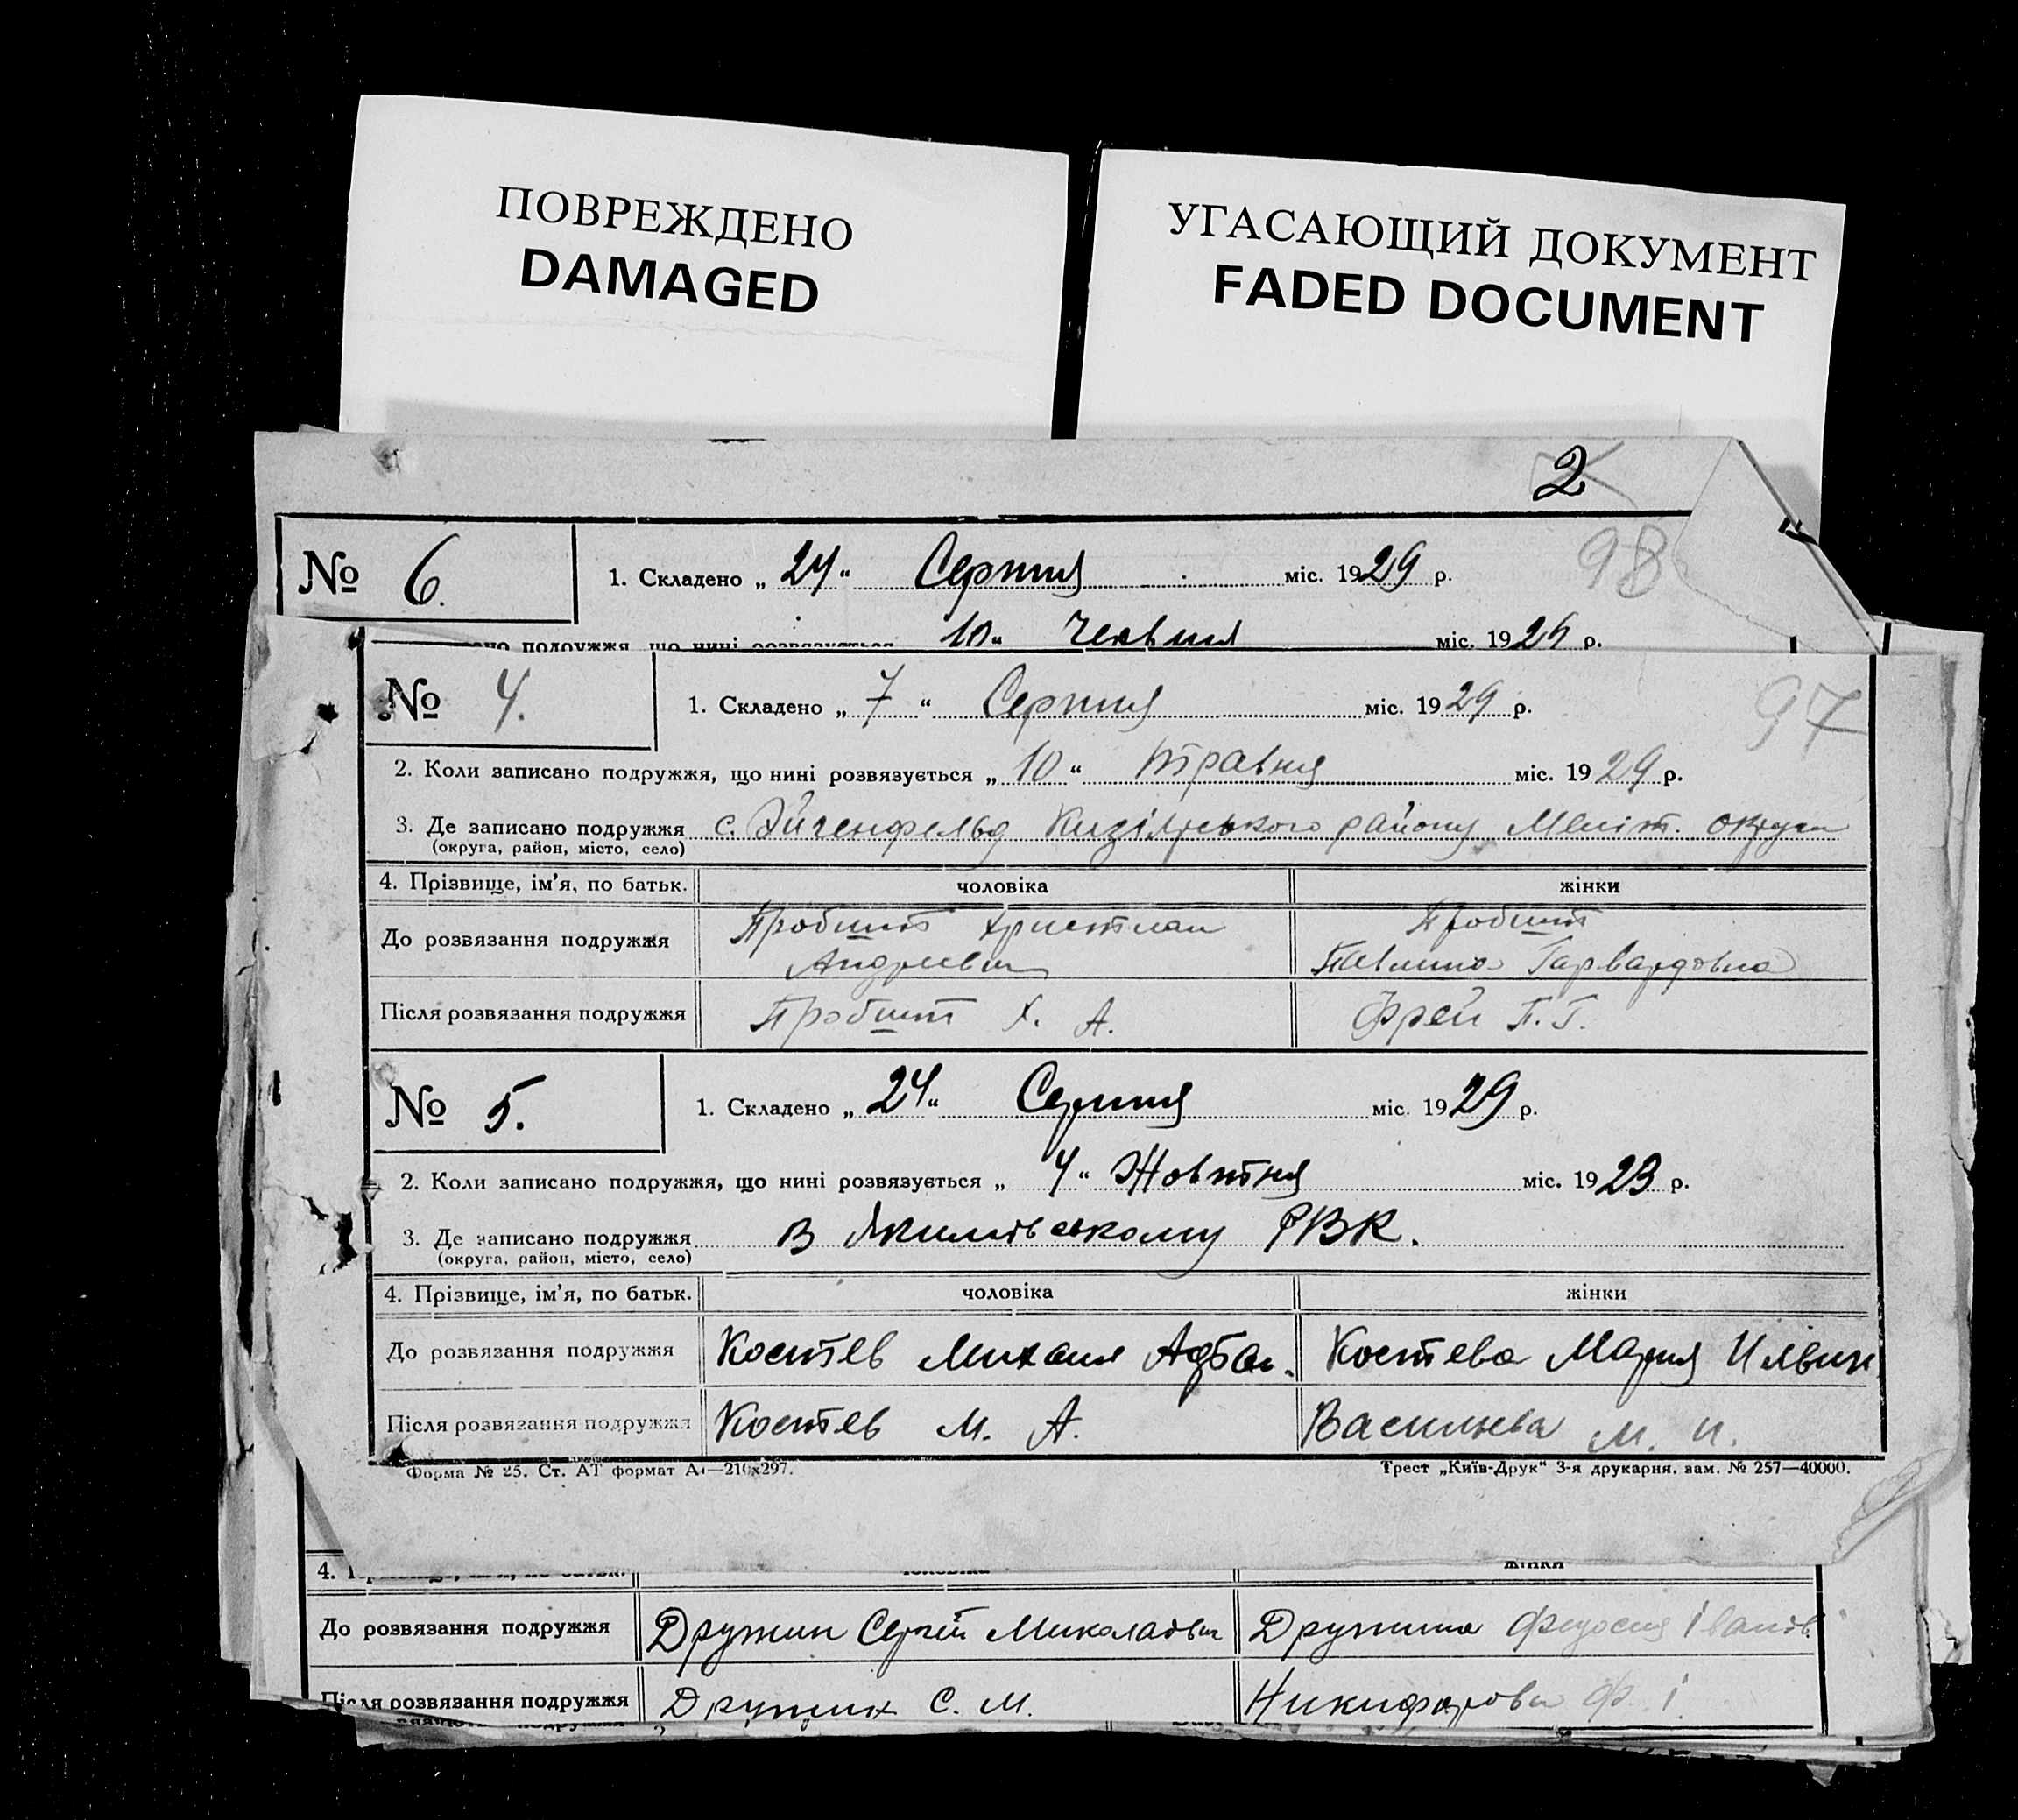 ПОВРЕЖДЕНО
DAMAGED
УГАСАЮЩИЙ ДОКУМЕНТ
FADED DOCUMENT
2
98
№ 6.
1. Складено „ 24 “ Серпня міс. 1929 р.
но подружжя, що нині розвязується 10 “ Червня міс. 192 р.
97
№ 4.
1. Складено „ 7 “ Серпня міс. 1929 р.
2. Коли записано подружжя, що нині розвязується „ 10 “ травня міс. 1929 р.
3. Де записано подружжя с. Эйгенфельд Кизілрського району Меліт. округи
(округа, район, місто, село)
4. Прізвище, ім’я, по батьк. чоловіка жінки
До розвязання подружжя Пробшт Христиан Андриевич Пробшт Павлина Гарвардовна
Після розвязання подружжя Пробшт Х. А. Фрей П. Г.
№ 5.
1. Складено „ 24 “ Серпня міс. 1929 р.
2. Коли записано подружжя, що нині розвязується „ 4 “ Жовтня міс. 1923 р.
3. Де записано подружжя в Якимівському РВК.
(округа, район, місто, село)
4. Прізвище, ім’я, по батьк. чоловіка жінки
До розвязання подружжя Костев Михаил Костева Мария Ильин
Після розвязання подружжя Костев М. А. Васильева М. И.
Форма № 25. Ст. АТ формат А4—210х297.
Трест „Київ-Друк“ 3-я друкарня. зам. № 257—40000.
4. жінки
До розвязання подружжя Дружин Сергей Миколаевич Дружина Федосия Іванів
Після розвязання подружжя Дружин С. М. Никифорова Ф. І.